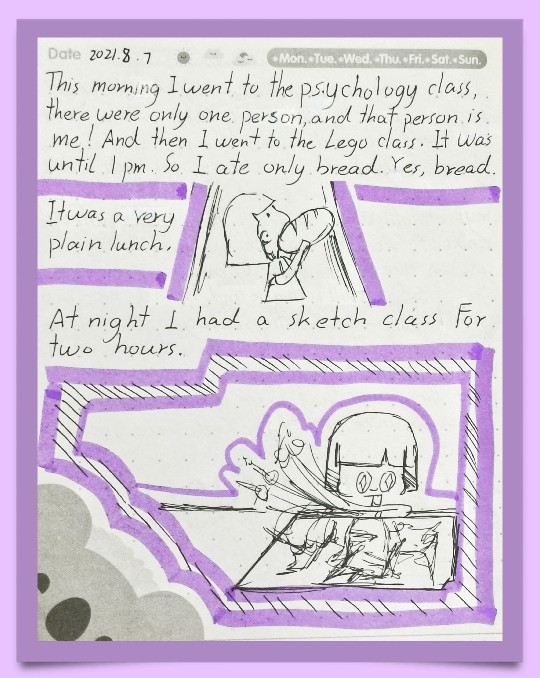 Date 2021.8.7
•Mon.•Tue.•Wed.•Thu.•Fri.•Sat.•Sun.
This morning I went to the psychology class,
there were only one person, and that person is
me! And then I went to the Lego class. It was
until 1 pm. So I ate only bread. Yes, bread.
It was a very
plain lunch.
At night I had a sketch class For
two hours.